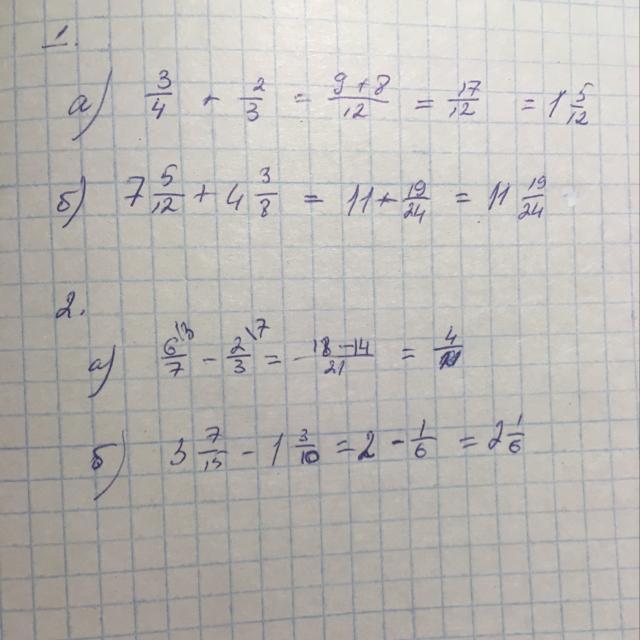 1.
а) 3/4 + 2/3 = (9+8)/12 = 17/12 = 1 5/12
б) 7 5/12 + 4 3/8 = 11 + 19/24 = 11 19/24
2.
а) 6/7 \3 − 2/3 \7 = (18−14)/21 = 4/
б) 3 7/15 − 1 3/10 = 2 − 1/6 = 2 1/6